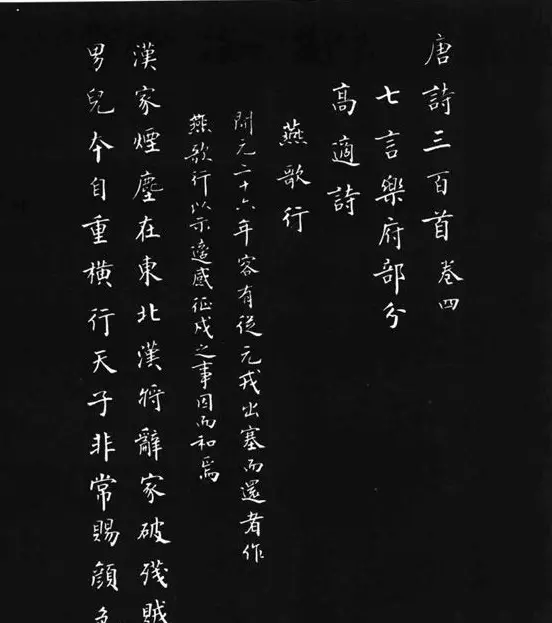 唐詩三百首 卷四
七言樂府部分
高適詩
燕歌行
開元二十六年客有從元戎出塞而還者作
燕歌行以示適感征戍之事因而和焉
漢家煙塵在東北漢將辭家破殘賊
男兒本自重橫行天子非常賜顏色